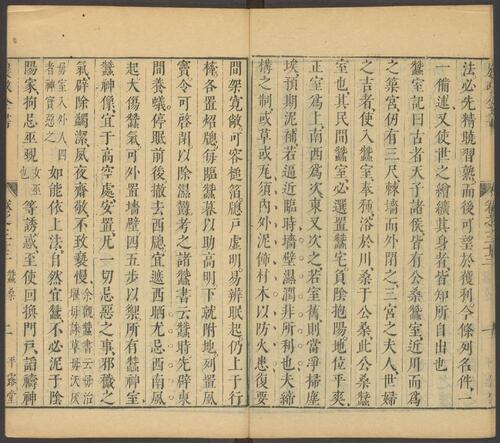 法必先精脁習熟而後可望於獲利今條列名件一
一備述又使世之繪纊其身者皆知所自出也
蠶室記曰古者天子諸侯皆有公桑蠶室近川而爲
之築宮仞有三尺棘墻而外閉之三宮之夫人世婦
之吉者使入蠶室奉種浴於川桑于公桑此公桑蠶
室也其民間蠶室必選置蠶宅負陰抱陽地位平爽
正室爲上南西爲次東又次之若室舊則當淨掃塵
埃預期泥補若逼近臨時墻壁濕潤非所利也夫締
構之制或草或瓦須內外泥傅材木以防火患復要
間架寬敞可容槌箔牕戸虛明易辨眠起仍上于行
㮇各置照牕每臨蠶暮以助高明下就附地列置風
竇令可啓閉以除濕鬱考之諸蠶書云蠶時先辟東
間養蟻停眠前後撤去西牕宜遮西晒尤忌西南風
起大傷蠶氣可外置墻壁四五步以禦所有蠶神室
蠶神像宜于高空處安置凡一切忌惡之事邪穢之
氣辟除蠲潔夙夜齋敬不致褻慢
余觀蠶書云毋治堰毋誅草毋沃灰毋室入外人四者神實惡之
如能依上法自然宜蠶不必泥于陰
陽家拘忌巫覡
女巫也
等誘惑至使回換門戸諂禱神
農政全書
卷之三十三
蠶桑
二
平露堂